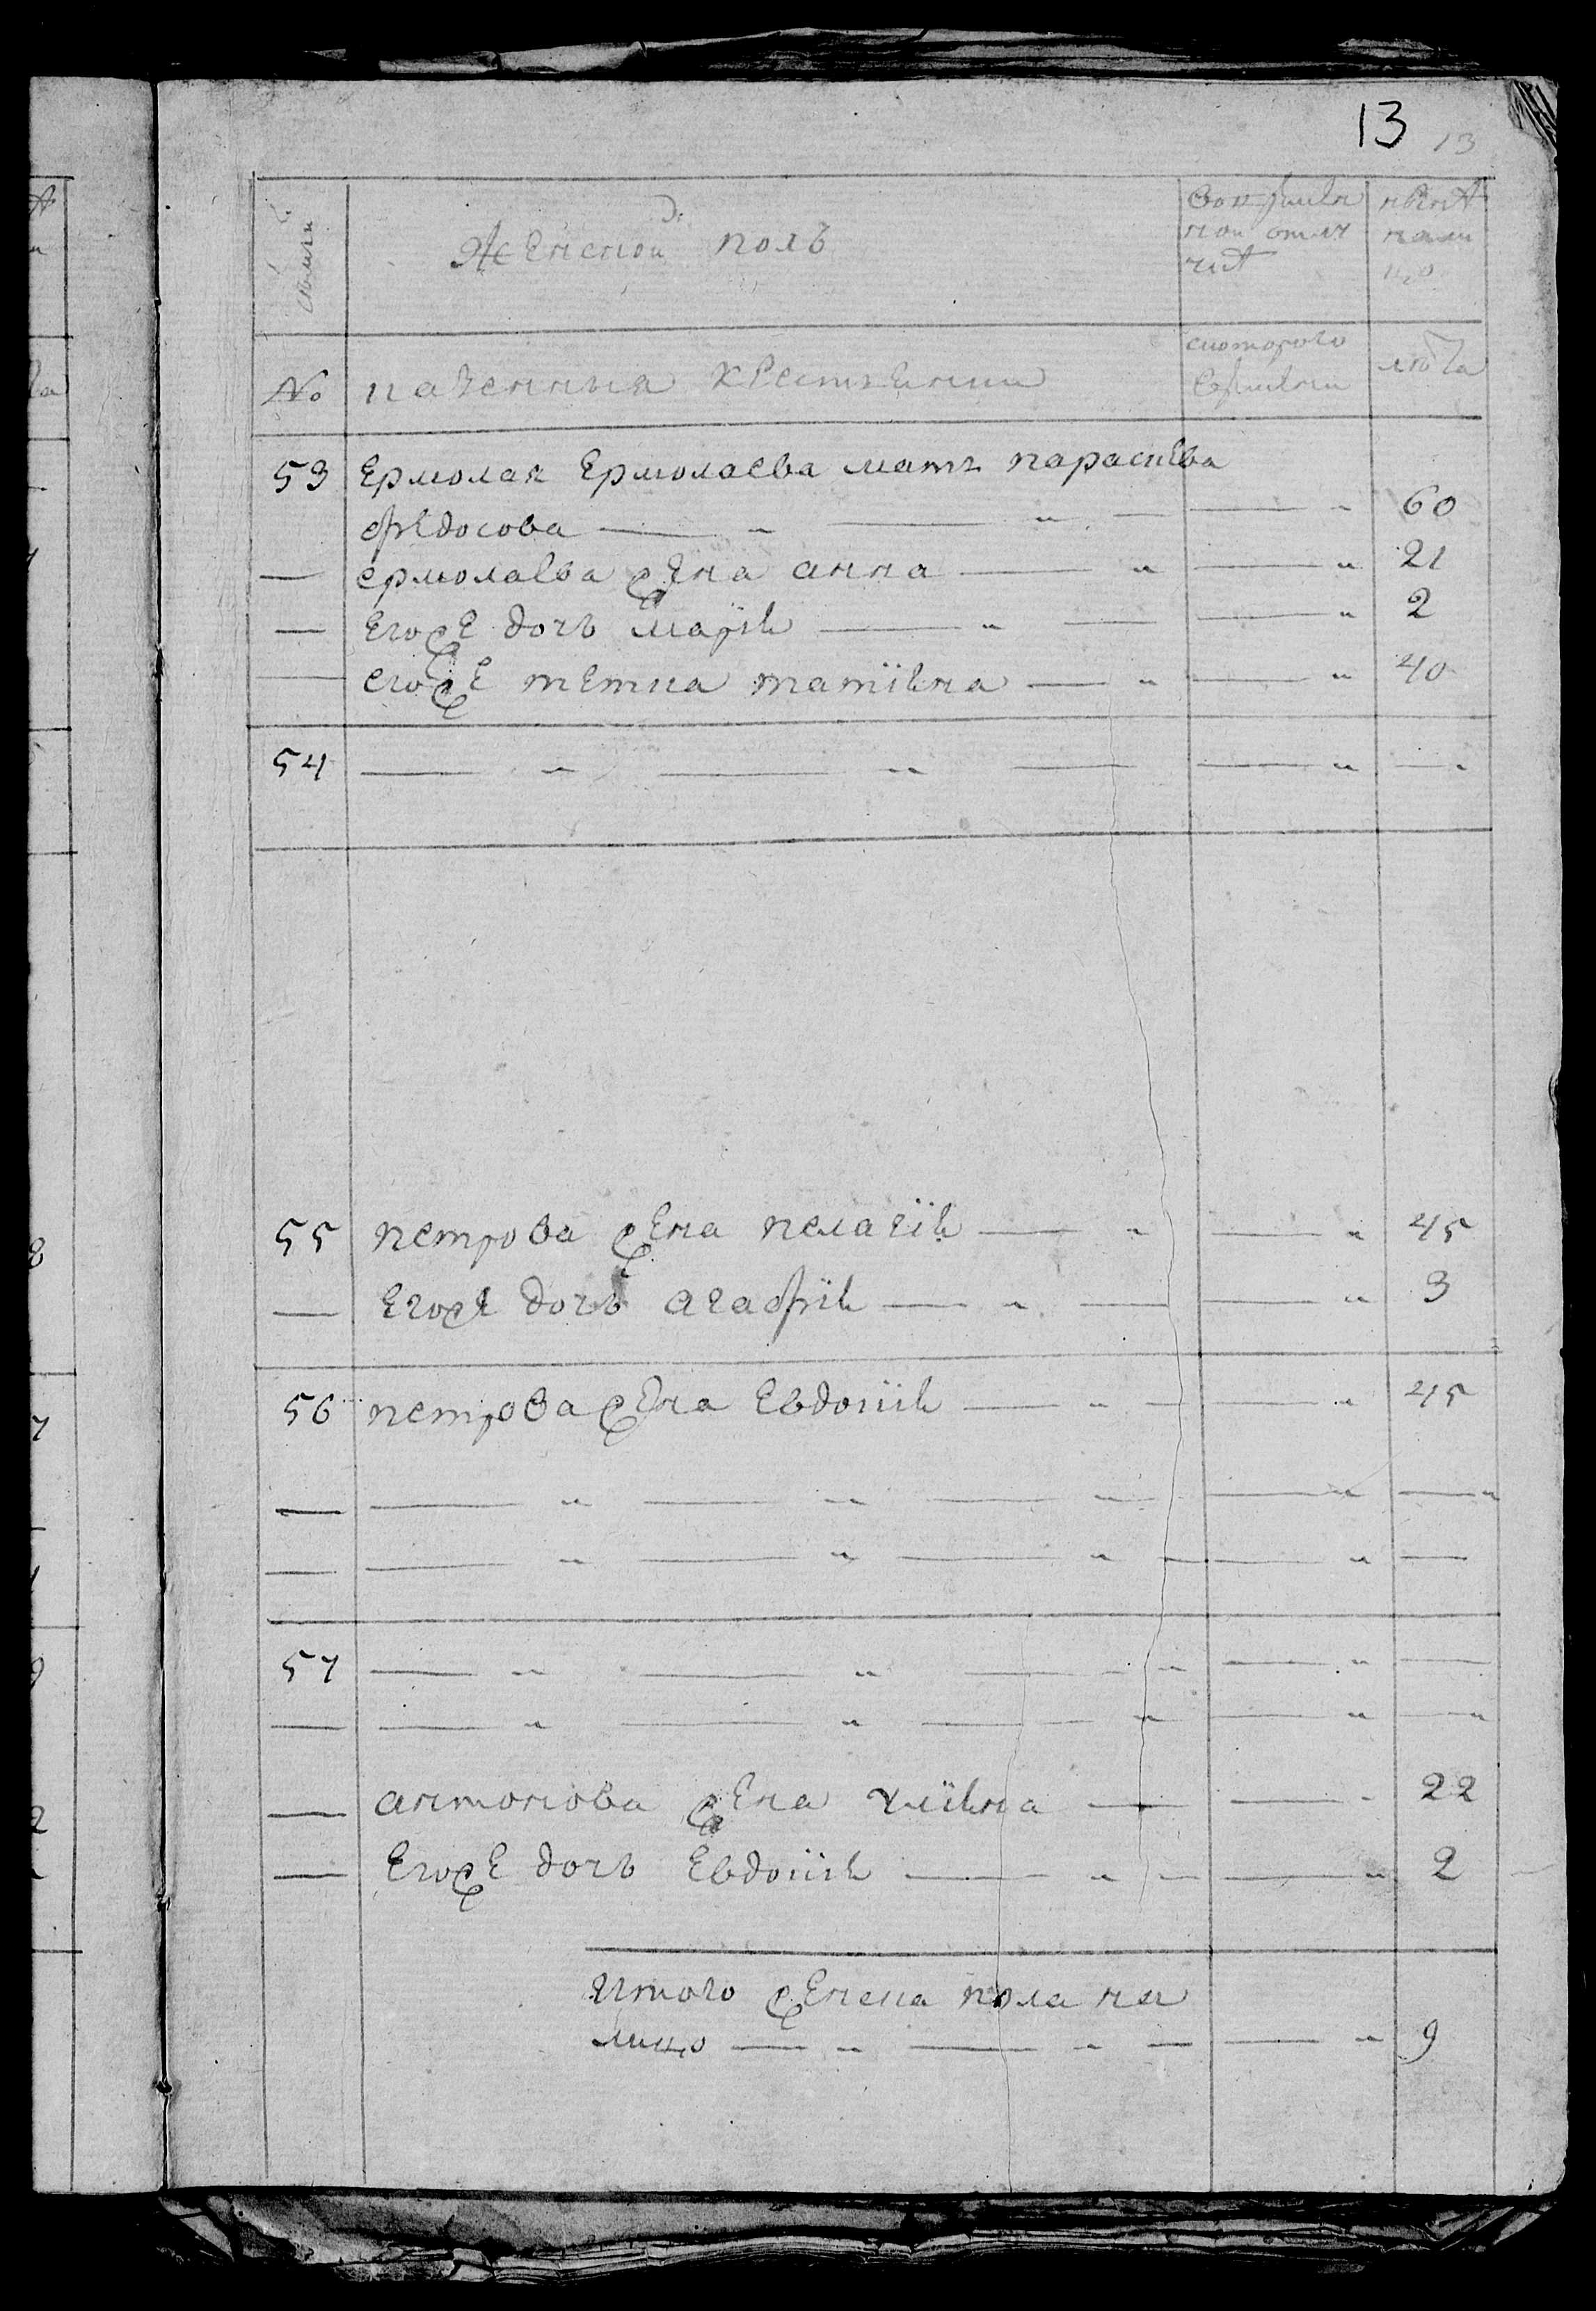 13 13
Семьи Женской полъ Во временной отлучке ныне на лицо
№ казенныя крестьянки с которого времени лета
53 Ермолая Ермолаева мать парасковья
федосова — „ — „ — — „ 60
— ермолаева жена анна — „ — „ 21
— Егоже дочь Марiя — „ — — „ 2
— егоже тетка татiяна — „ — „ 40
54 — „ — „ — — „ — „
55 петрова жена пелагiя — „ — „ 45
— Егоже дочь агафiя — „ — — „ 3
56 петрова жена Евдокiя — „ — — „ 45
— — „ — „ — „ — „ — „
— — „ — „ — „ — — „ —
57 — „ — „ — „ — „ —
— — „ — „ — „ — „ — „
— антонова жена улiяна — — „ 22
— Егоже дочь Евдокiя — „ — — „ 2
Итого женска пола на
лицо — „ — „ — — „ 9